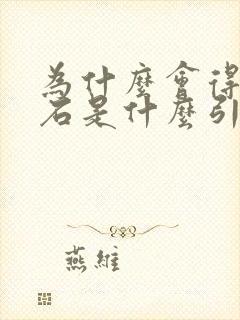 為什麼會得
石是什麼引
燕維